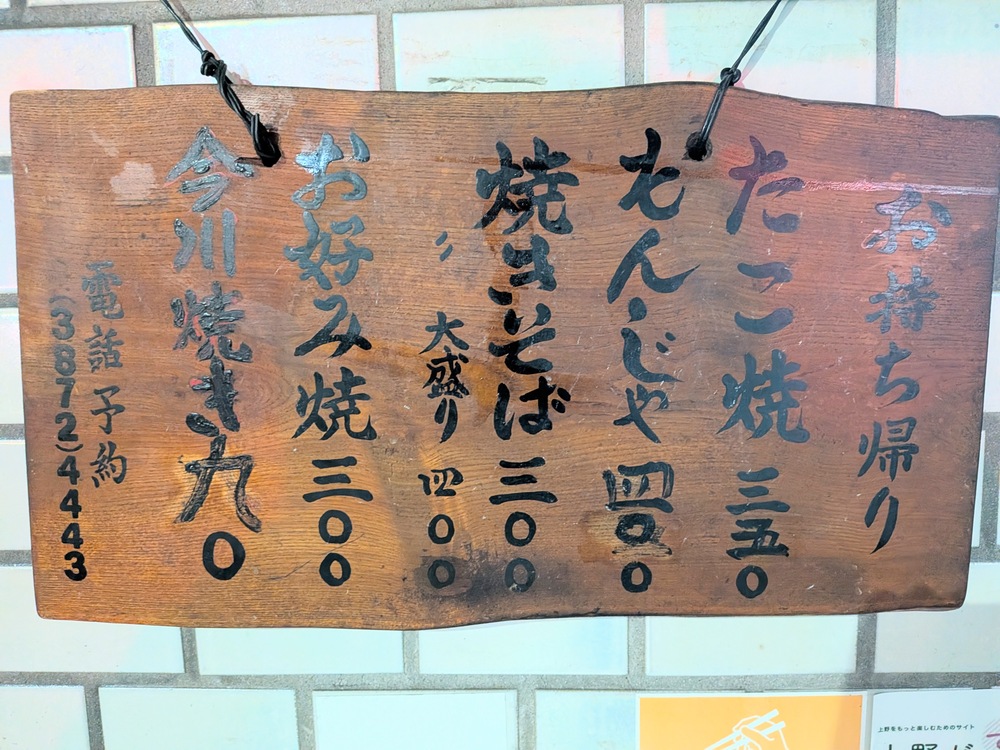 お持ち帰り
たこ焼 三五〇
もんじゃ 四〇〇
焼きそば 三〇〇
〃 大盛り 四〇〇
お好み焼 三〇〇
今川焼き 九〇
電話予約
(3872)4443
上野をもっと楽しむためのサイト